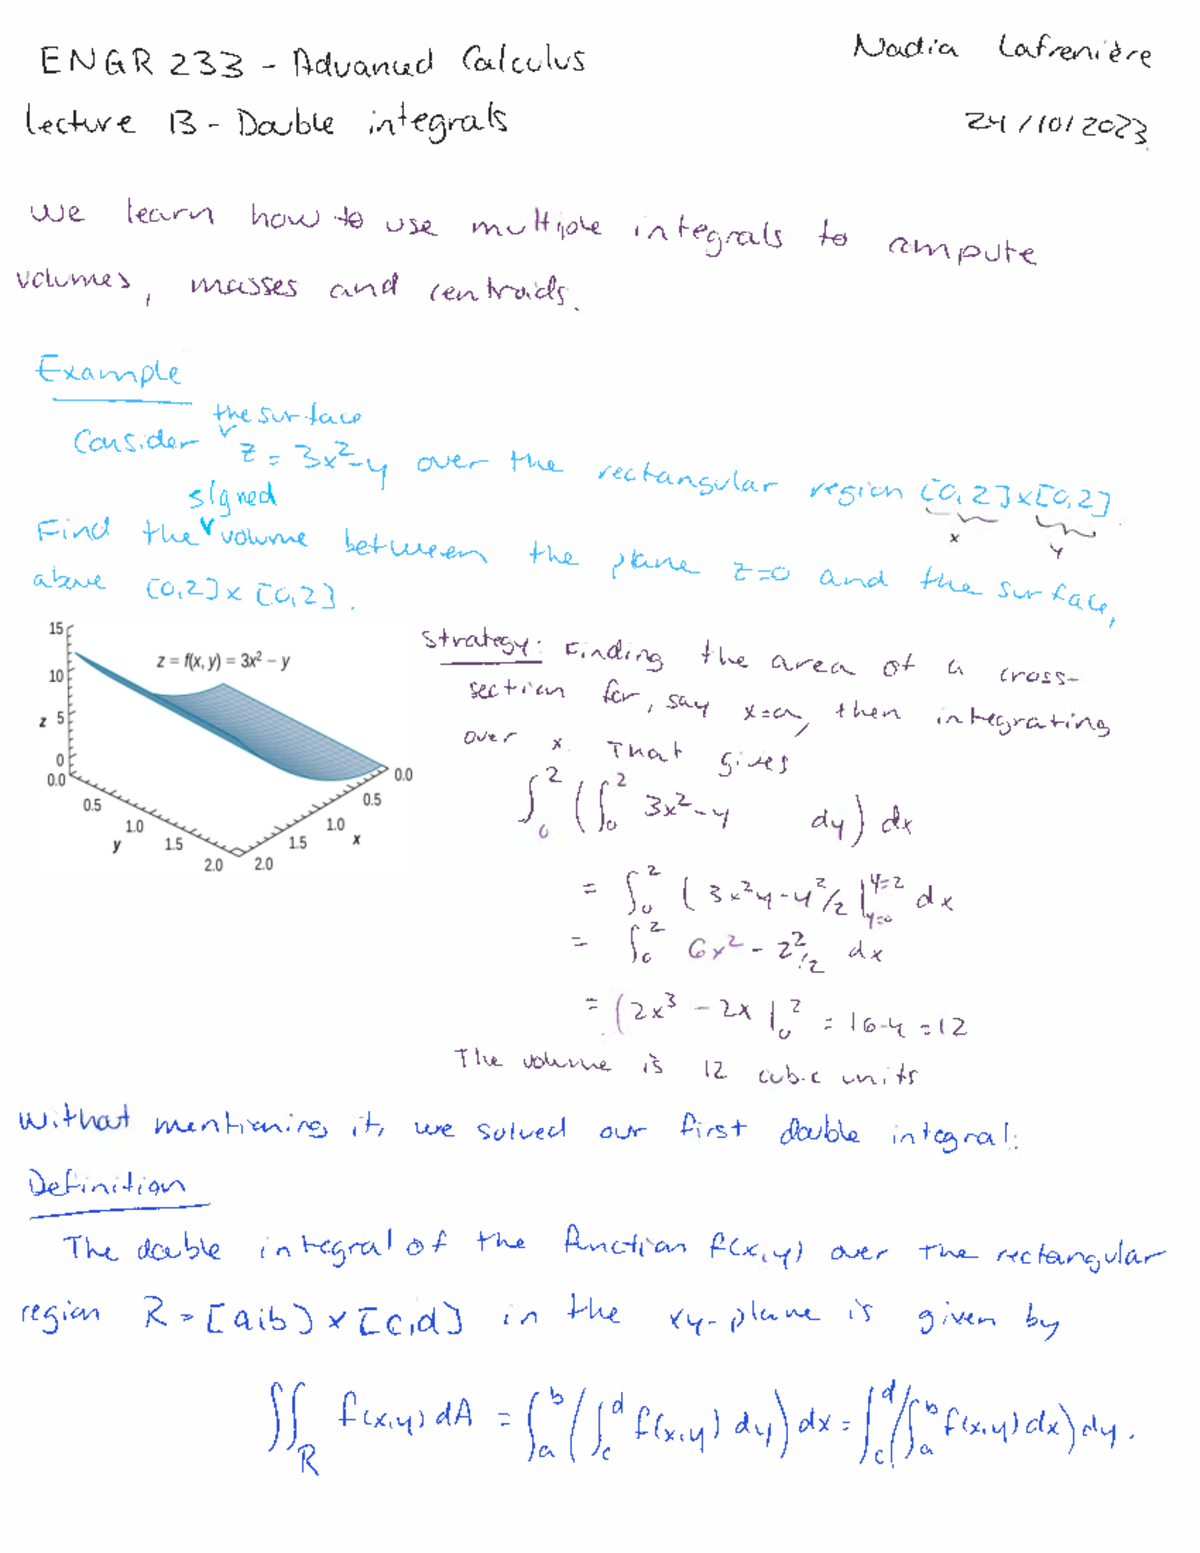 ENGR 233 - Advanced Calculus
Nadia Lafrenière
lecture 13 - Double integrals
24/10/2023
We learn how to use multiple integrals to compute
volumes, masses and centroids.
Example
the surface
Consider z = 3x² - y over the rectangular region [0,2]x[0,2]
x y
signed
Find the volume between the plane z=0 and the surface,
above [0,2] x [0,2].
15
10
z 5
0
0.0
0.5
1.0
y 1.5
2.0
z = f(x, y) = 3x² − y
0.0
0.5
1.0
x
1.5
2.0
Strategy: Finding the area of a cross-
section for, say x=a, then integrating
over x. That gives
∫₀² (∫₀² 3x² - y dy) dx
= ∫₀² (3x²y - y²/2 |_{y=0}^{y=2} dx
= ∫₀² 6x² - 2²/2 dx
= (2x³ - 2x |₀² = 16-4 = 12
The volume is 12 cubic units
Without mentioning it, we solved our first double integral:
Definition
The double integral of the function f(x,y) over the rectangular
region R = [a,b] x [c,d] in the xy-plane is given by
∬_R f(x,y) dA = ∫_a^b (∫_c^d f(x,y) dy) dx = ∫_c^d (∫_a^b f(x,y) dx) dy.